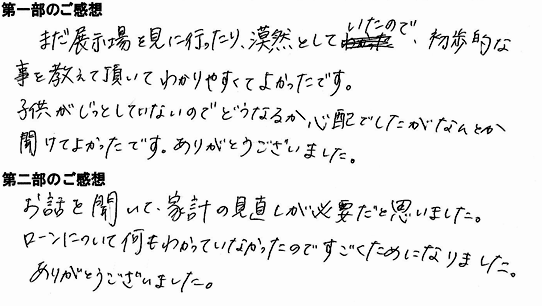 第一部のご感想
まだ展示場を見に行ったり、漠然としていたので、初歩的な
事を教えて頂いてわかりやすくてよかったです。
子供がじっとしていないのでどうなるか、心配でしたがなんとか
聞けてよかったです。ありがとうございました。
第二部のご感想
お話を聞いて、家計の見直しが必要だと思いました。
ローンについて何もわかっていなかったのですごくためになりました。
ありがとうございました。